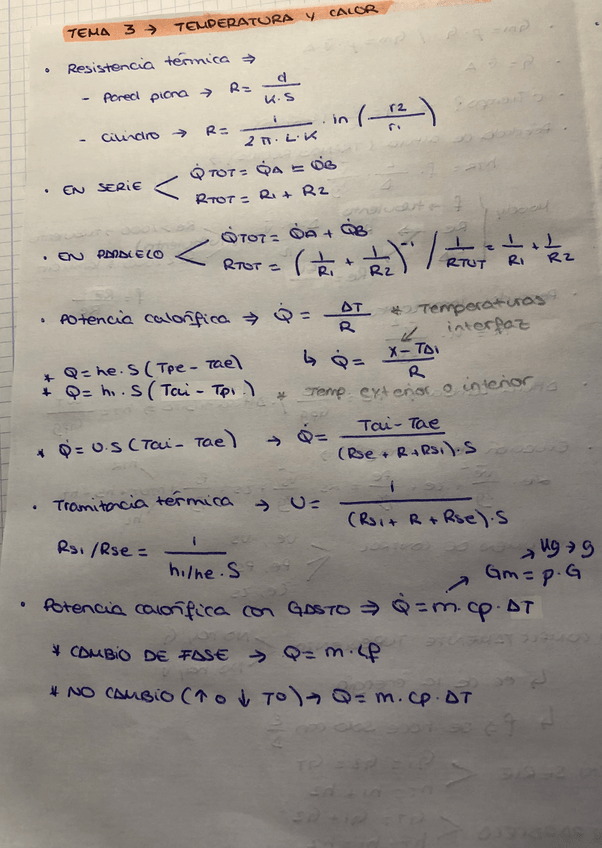 TEMA 3 → TEMPERATURA Y CALOR
• Resistencia térmica ⇒
- Pared plana → R = d / K·S
- Cilindro → R = 1 / 2π·L·K · in (r2 / r1)
• EN SERIE < Q̇TOT = Q̇A = Q̇B
RTOT = R1 + R2
• EN PARALELO < Q̇TOT = Q̇A + Q̇B
RTOT = (1/R1 + 1/R2)⁻¹ / 1/RTOT = 1/R1 + 1/R2
• Potencia calorífica ⇒ Q̇ = ΔT / R * Temperaturas interfaz
↳ Q̇ = x - TΔi / R
* Q = he·S (Tpe - Tae)
* Q = hi·S (Tai - Tpi) * Temp exterior o interior
* Q̇ = U·S (Tai - Tae) → Q̇ = Tai - Tae / (Rse + R + Rsi)·S
• Tramitancia térmica → U = 1 / (Rsi + R + Rse)·S
Rsi/Rse = 1 / hi/he·S
→ Kg → g
Gm = p·G
• Potencia calorífica con GASTO ⇒ Q̇ = m·cp·ΔT
* CAMBIO DE FASE → Q = m·Lf
* NO CAMBIO (↑ o ↓ Tº) → Q = m·cp·ΔT